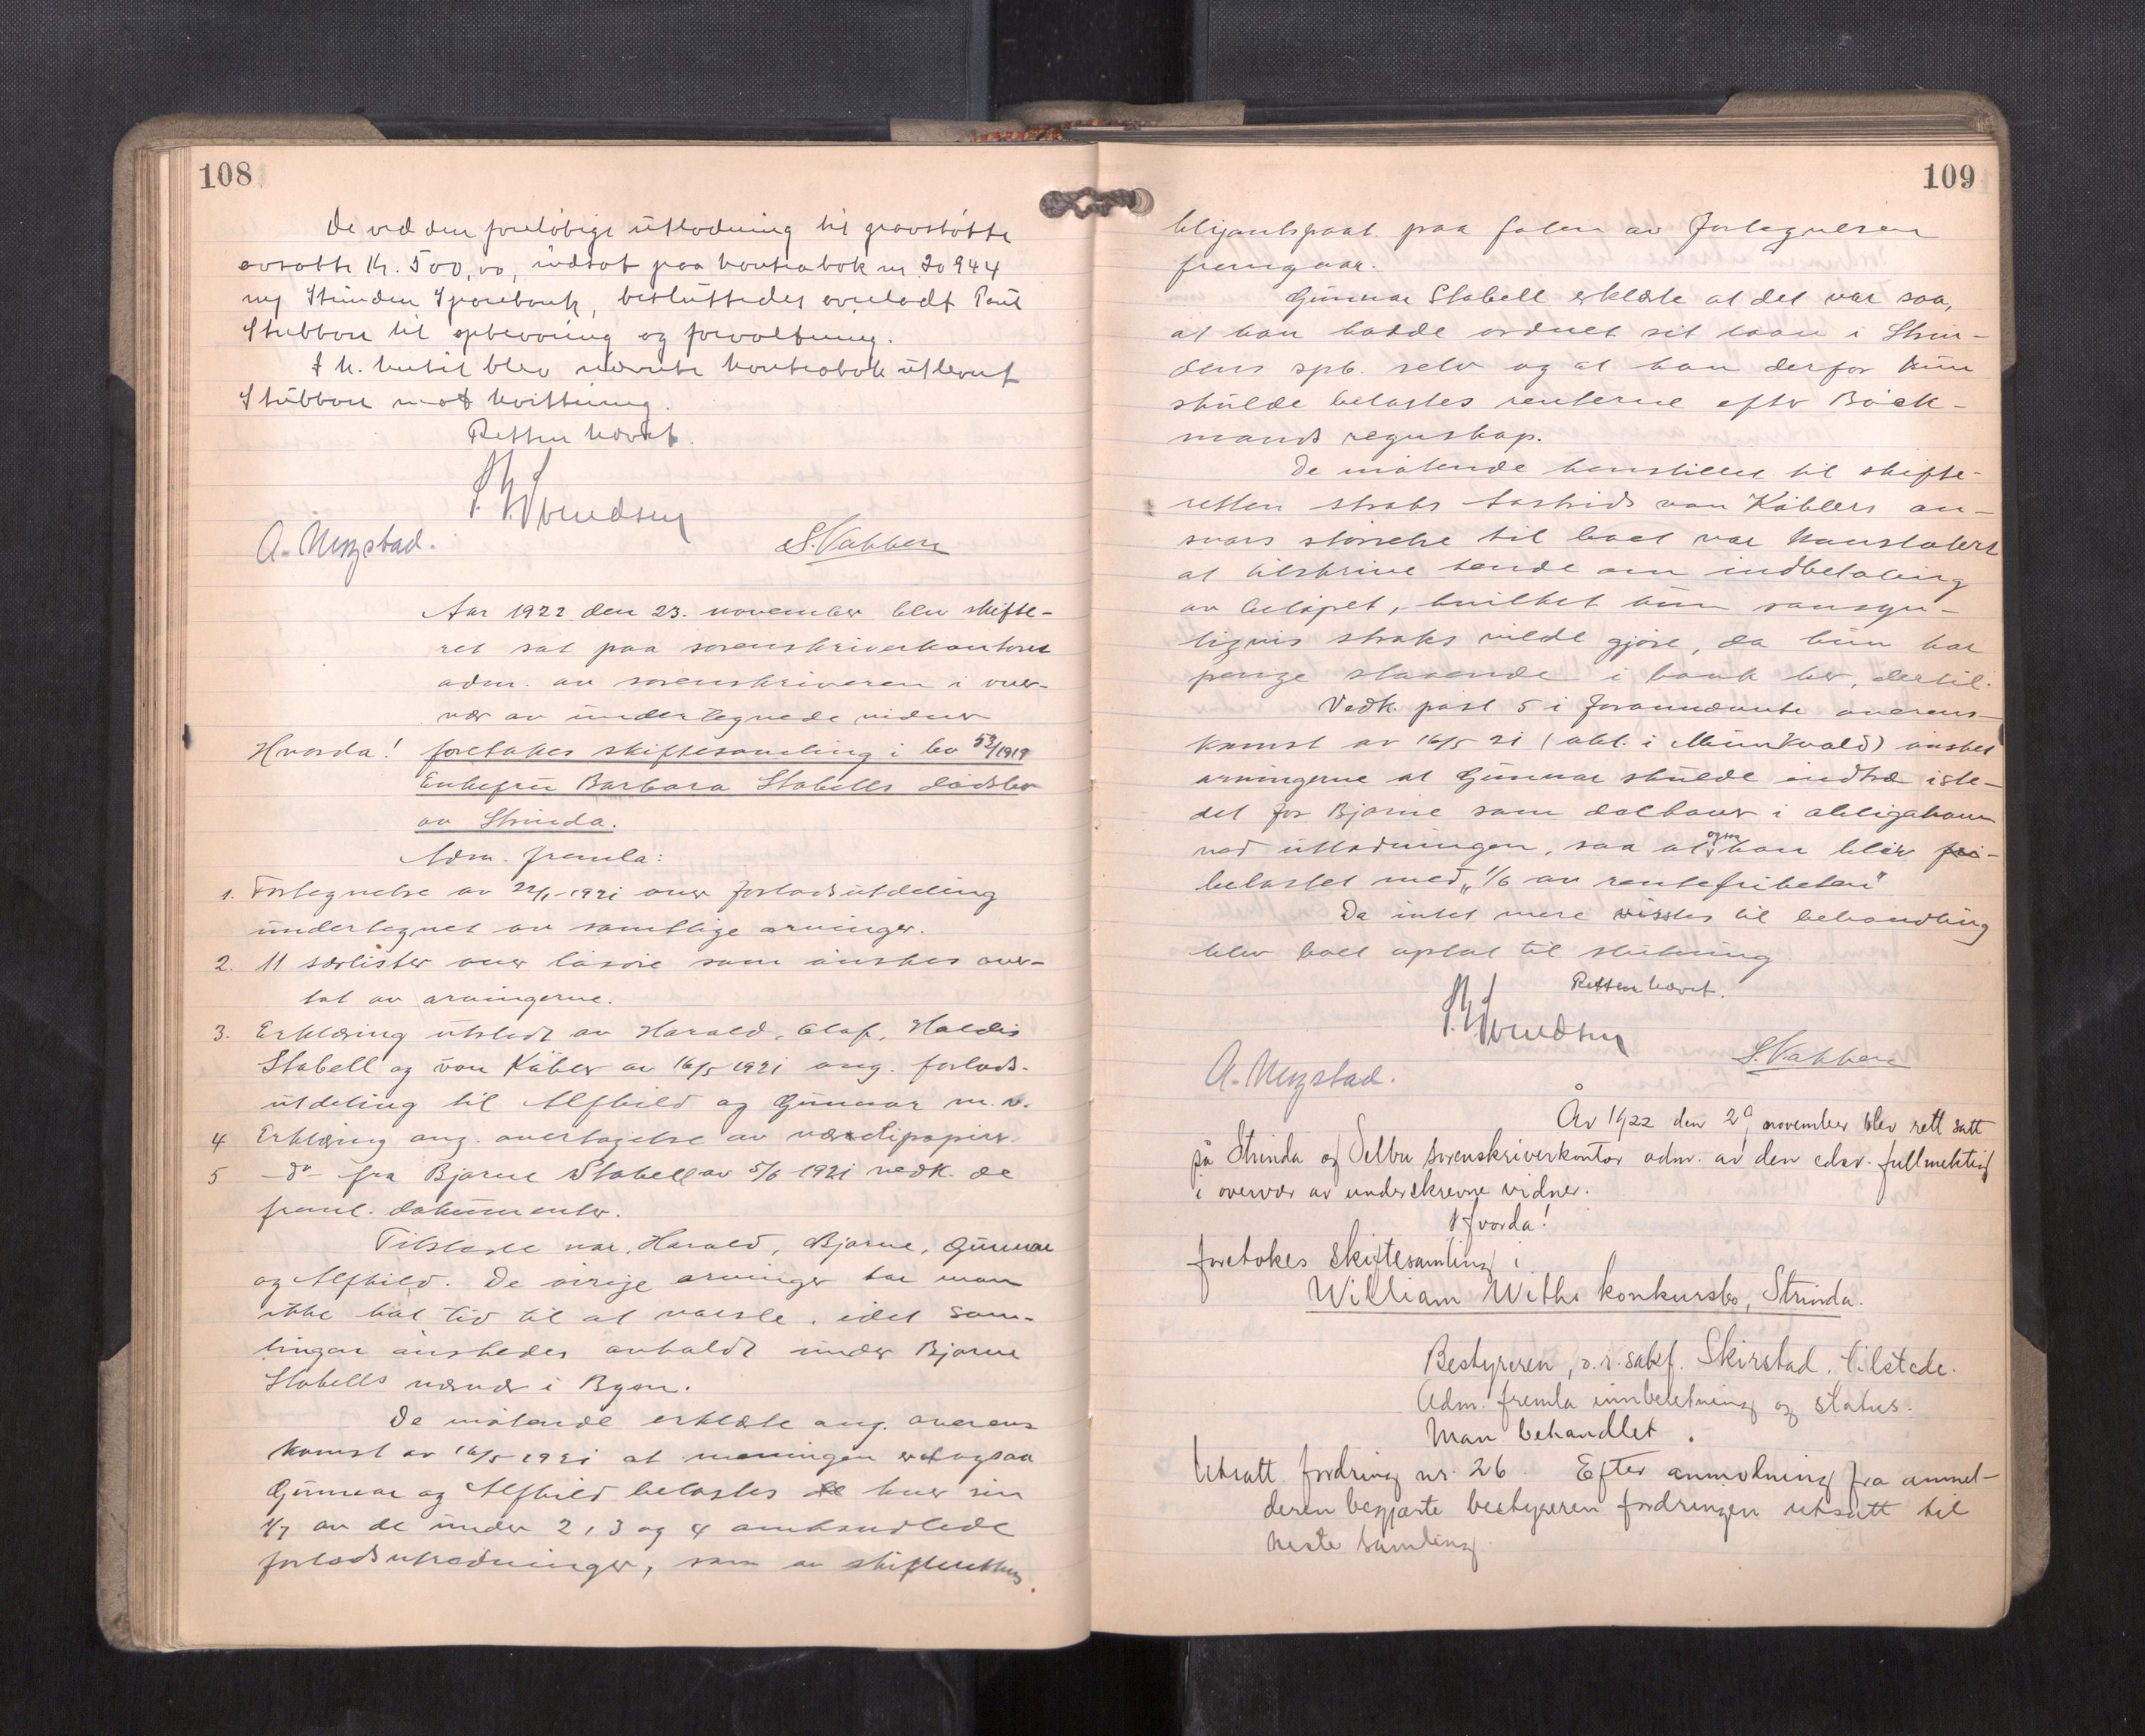 108
De ved den foreløbige utlodning til gravstøtte
avsatte kr. 500,00, indsat paa kontrabok nr 20944
i Strinden Sparebank, besluttedes overladt Paul
Stubban til opbevaring og forvaltning.
I h. hertil blev nævnte kontrabok utlevert
Stubban mot kvittering.
Retten hævet.
A. Mogstad. S. Vabben
Aar 1922 den 23. november blev skifte-
ret sat paa sorenskriverkontoret
adm. av sorenskriveren i over-
vær av undertegnede vidner
Hvorda! foretokes skiftesamling i bo 53/1919
Enkefru Barbara Stabells dødsbo
av Strinda.
Adm. fremla:
1. Fortegnelse av 22/1-1921 over forlodsutdeling
undertegnet av samtlige arvinger.
2. 11 særlister over løsøre som ønskes over-
tat av arvingerne.
3. Erklæring utstedt av Harald, Olaf, Haldis
Stabell og von Kübler av 16/5 1921 ang. forlods-
utdeling til Alfhild og Gunnar m. v.
4 Erklæring ang. overtagelse av værdipapirer.
5 -do- fra Bjarne Stabell av 5/6 1921 vedk. de
freml. dokumenter.
Tilstede var Harald, Bjarne, Gunnar
og Alfhild. De øvrige arvinger har man
ikke hat tid til at varsle, idet sam-
lingen ønskedes avholdt under Bjarne
Stabells nærvær i Byen.
De møtende erklærte ang. overens
komst av 16/5 1921 at meningen er at ogsaa
Gunnar og Alfhild belastes hver sin
1/7 av de under 2, 3 og 4 omhandlede
forlodsutredninger, som av skifterettens
109
paa foten av fortegnelsen
fremgaar.
Gunnar Stabell erklærte at det var saa,
at han hadde ordnet sit laan i Strin-
dens spb. selv og at han derfor kun
skulde belastes renterne efter Böck-
mands regnskap.
De møtende henstillet til skifte-
retten straks Astrid von Küblers an-
svars størrelse til boet var konstatert
at tilskrive hende om indbetaling
av beløpet, hvilket hun sansyn-
ligvis straks vilde gjøre, da hun har
penge staaende i bank her, dertil.
Vedk. post 5 i forannævnte overens-
komst av 16/5 21 (obl. i Munkvold) ønsket
arvingerne at Gunnar skulde indtræ iste-
det for Bjarne som delhaver i obligationen
ved utlodningen, saa at ogsaa han blir
belastet med "1/6 av rentefriheten"
Da intet mere vistes til behandling
blev boet optat til slutning
Retten hævet.
A. Mogstad. S. Vabben
År 1922 den 29 november blev rett satt
på Strinda og Selbu sorenskriverkontor adm. av den edsv. fullmektig
i overvær av underskrevne vidner.
Hvorda!
foretokes skiftesamling i
William Withs konkursbo, Strinda.
Bestyreren, o.r.sakf. Skirstad, tilstede.
Adm. fremla innberetning og status.
Man behandlet.
Utsatt fordring nr. 26. Efter anmodning fra anmel-
deren begjærte bestyreren fordringen utsatt til
neste samling